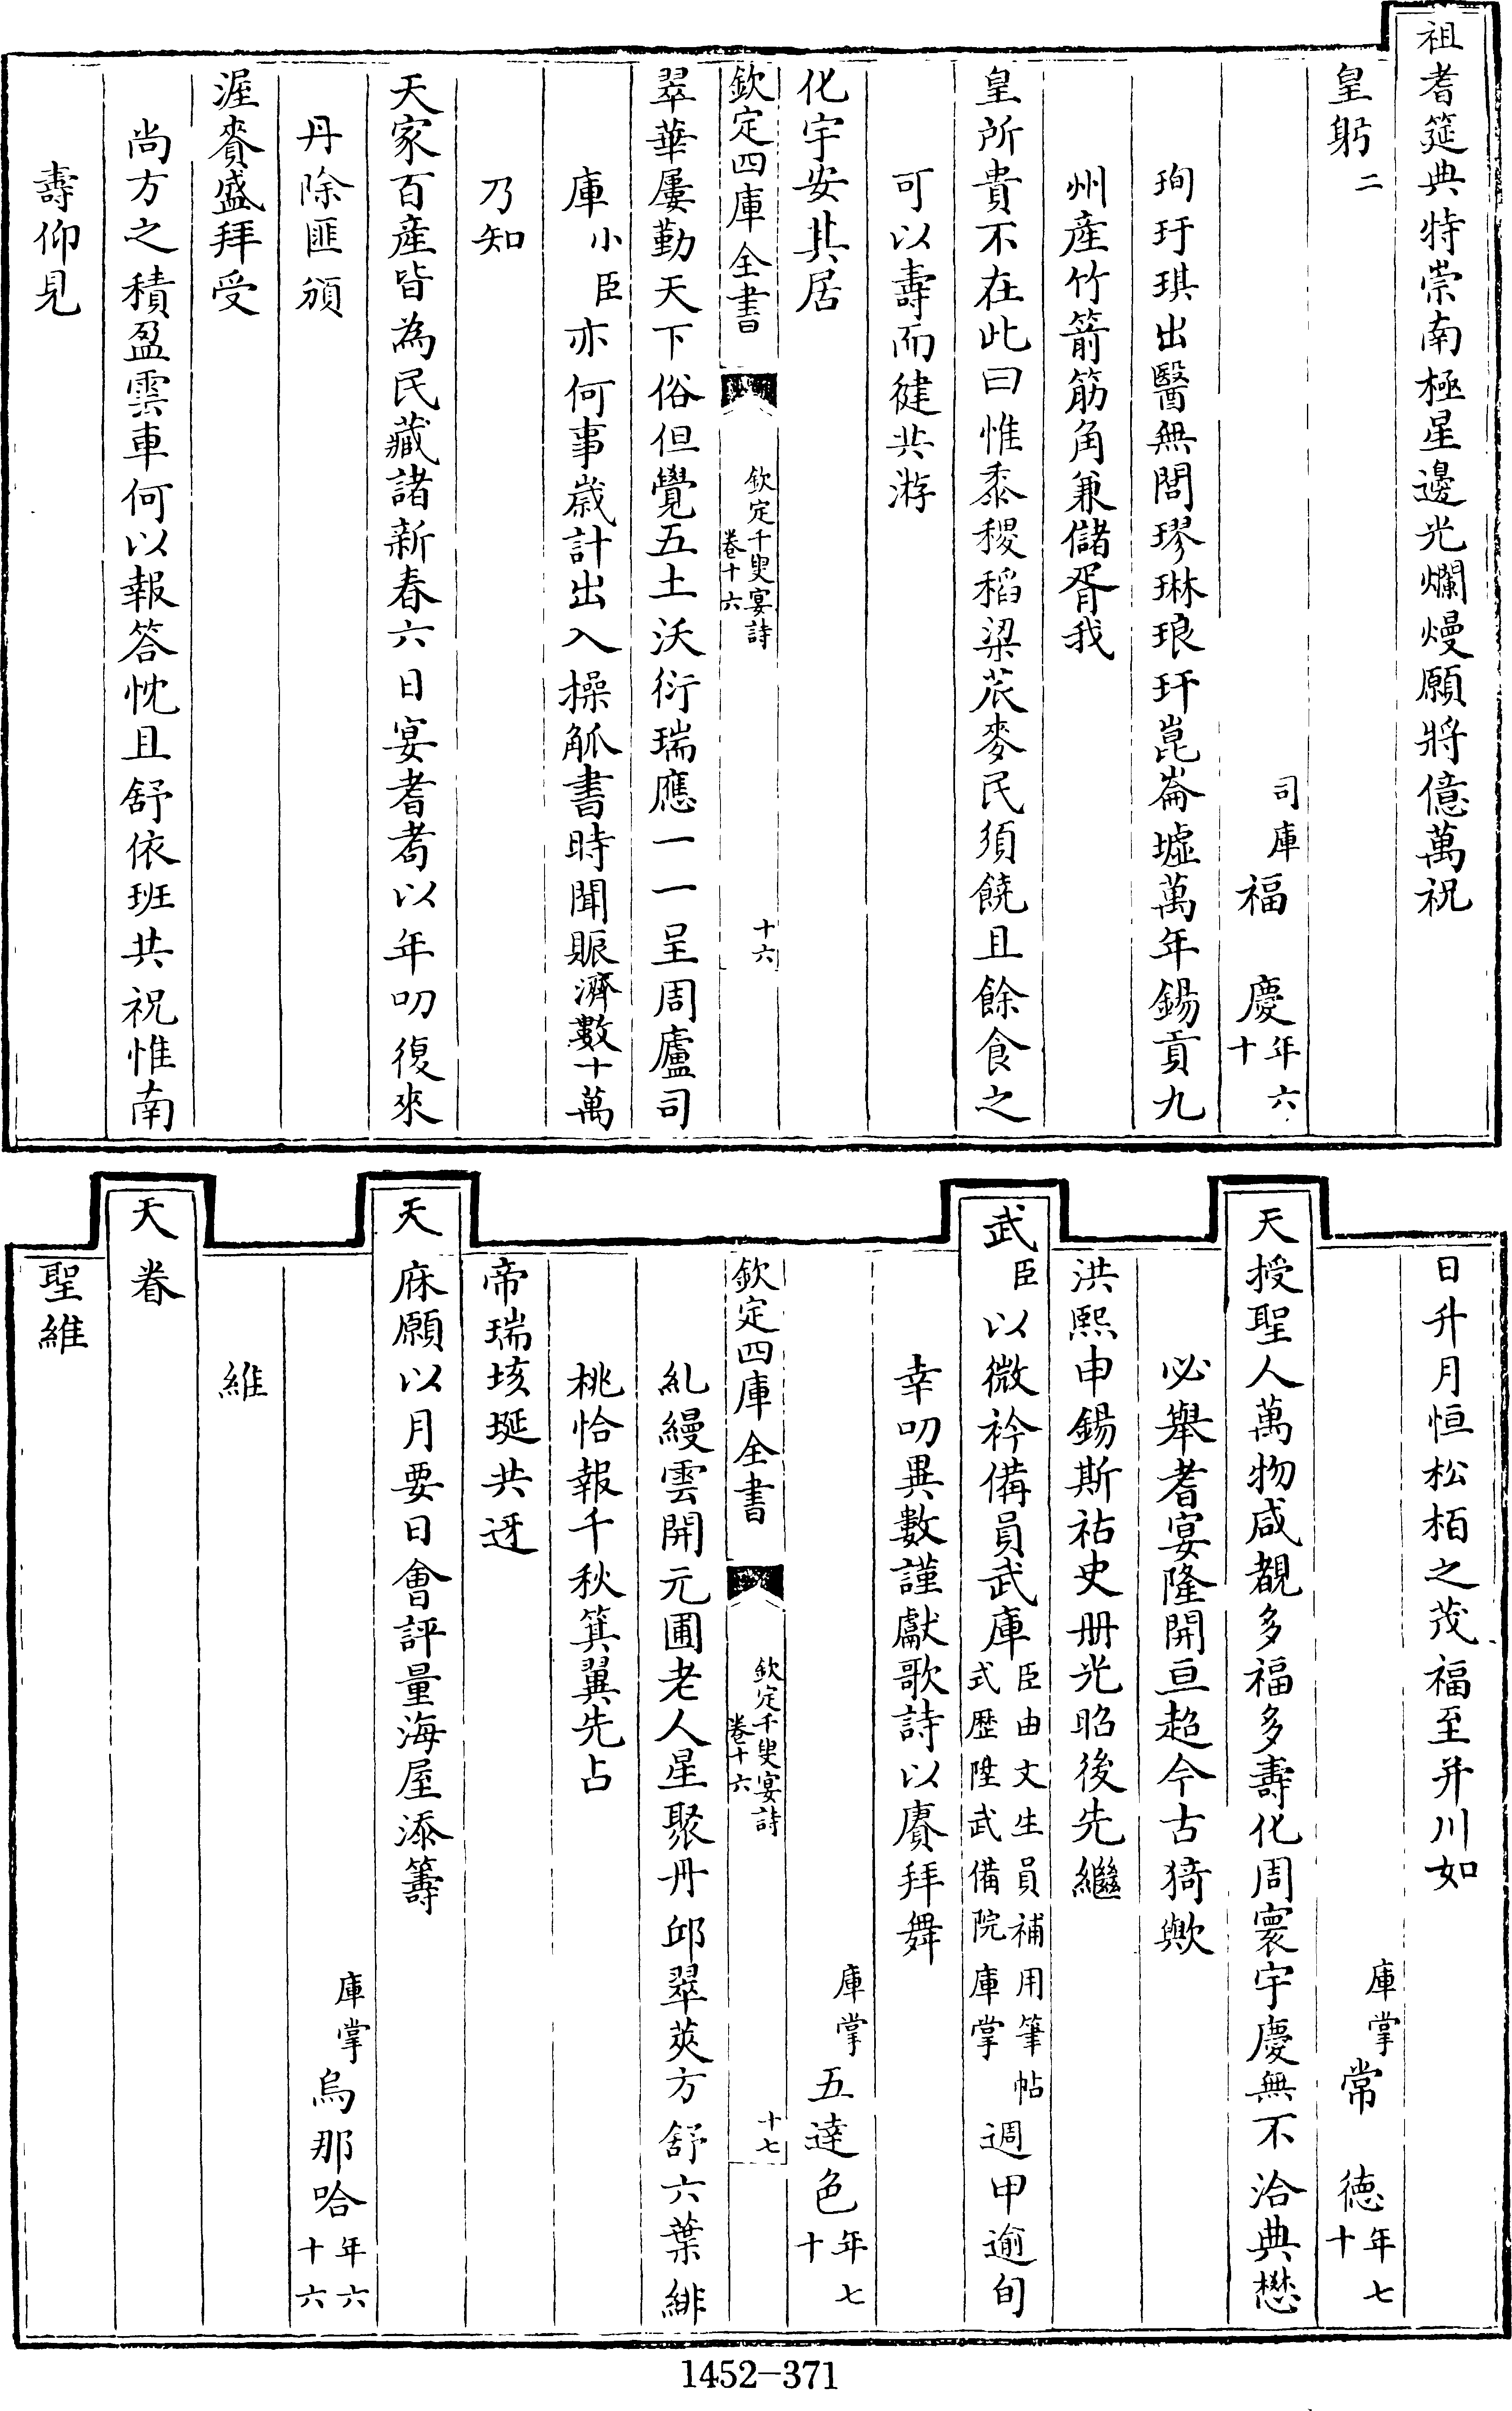 祖耆筵典特崇南極星邊光爛熳願將億萬祝
皇躬二
司庫福慶年六十
珣玗琪出醫無閭璆琳琅玕崑崙墟萬年錫貢九
州産竹箭筋角兼儲胥我
皇所貴不在此曰惟黍稷稻粱苽麥民須饒且餘食之
可以壽而健共游
化宇安其居
欽定四庫全書
欽定千叟宴詩
卷十六
十六
翠華屢勤天下俗但覺五土沃衍瑞應一一呈周廬司
庫小臣亦何事歲計出入操觚書時聞賑濟數十萬
乃知
天家百産皆為民藏諸新春六日宴耆耇以年叨復來
丹除匪頒
渥賚盛拜受
尚方之積盈雲車何以報答忱且舒依班共祝惟南
壽仰見
日升月恒松栢之茂福至并川如
庫掌常德年七十
天授聖人萬物咸覩多福多壽化周寰宇慶無不洽典懋
必舉耆宴隆開亘超今古猗歟
洪熙申錫斯祜史册光昭後先繼
武臣以微衿備員武庫臣由文生員補用筆帖式歷陞武備院庫掌週甲逾旬
幸叨異數謹獻歌詩以賡拜舞
庫掌五達色年七十
欽定四庫全書
欽定千叟宴詩
卷十六
十七
糺縵雲開元圃老人星聚丹邱翠莢方舒六葉緋
桃恰報千秋箕翼先占
帝瑞垓埏共迓
天庥願以月要日會評量海屋添籌
庫掌烏那哈年六十六
維
天眷
聖維